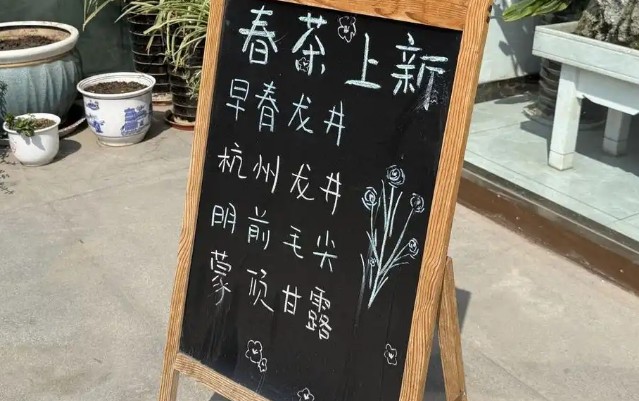 春茶上新
早春龙井
杭州龙井
明前毛尖
蒙顶甘露